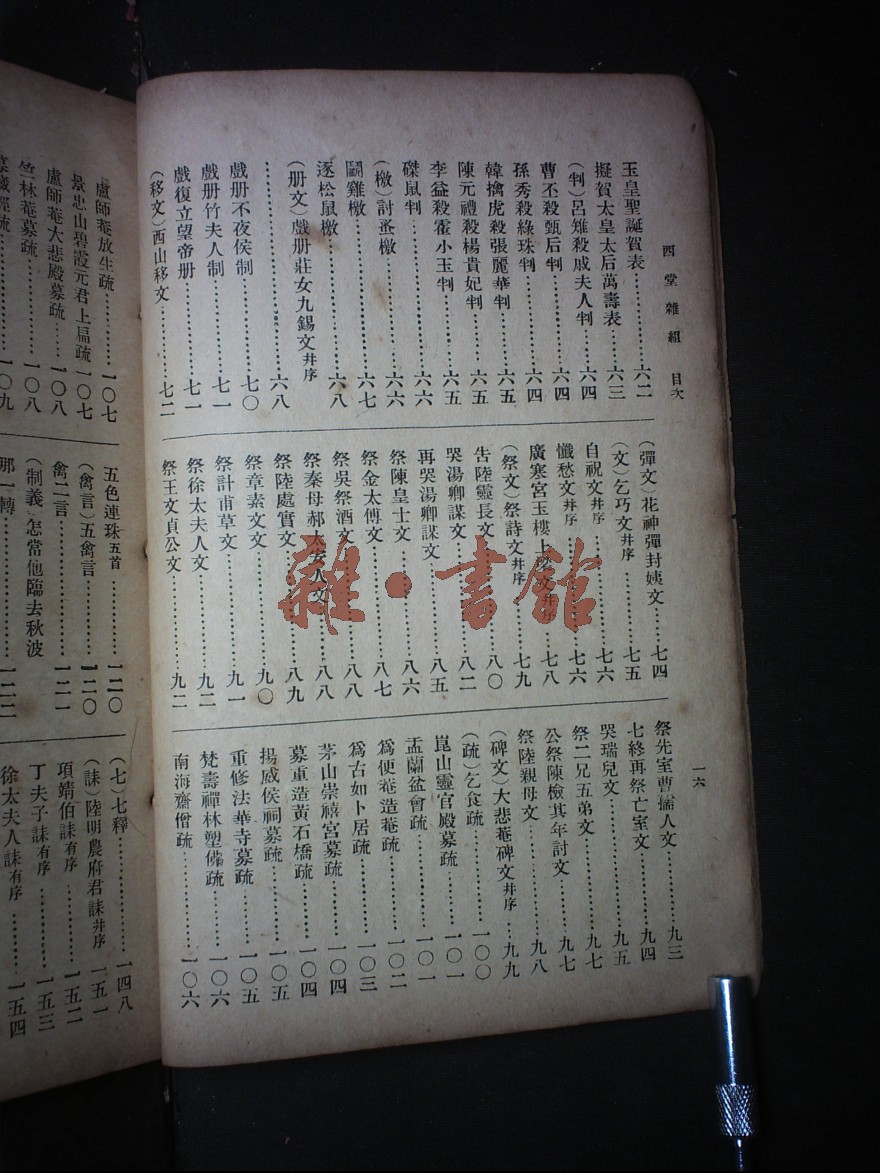 西堂雜組 目次
玉皇聖誕賀表…………六二
擬賀太皇太后萬壽表……六三
(判)呂雉殺戚夫人判……六四
曹丕殺甄后判…………六四
孫秀殺綠珠判…………六四
韓擒虎殺張麗華判………六五
陳元禮殺楊貴妃判………六五
李益殺霍小玉判…………六五
磔鼠判…………六六
(檄)討蚤檄…………六六
鬭雞檄…………六七
逐松鼠檄…………六八
(册文)戲册莊女九錫文并序
…………六八
戲册不夜侯制…………七〇
戲册竹夫人制…………七一
戲復立望帝册…………七一
(移文)西山移文…………七二
(彈文)花神彈封姨文……七四
(文)乞巧文并序…………七五
自祝文并序…………七六
懺愁文并序…………七六
廣寒宮玉樓上梁文并序……七八
(祭文)祭詩文并序………七九
告陸靈長文…………八〇
哭湯卿謀文…………八二
再哭湯卿謀文…………八五
祭陳皇士文…………八六
祭金太傅文…………八七
祭吳祭酒文…………八八
祭秦母郝太安人文………八八
祭陸處實文…………八九
祭章素文文…………九〇
祭計甫草文…………九一
祭徐太夫人文…………九二
祭王文貞公文…………九二
一六
祭先室曹孺人文…………九三
七終再祭亡室文…………九四
哭瑞兒文…………九五
祭二兄五弟文…………九七
公祭陳檢其年討文………九七
祭陸親母文…………九八
(碑文)大悲菴碑文并序……九九
(疏)乞食疏…………一〇〇
崑山靈官殿募疏…………一〇一
盂蘭盆會疏…………一〇一
爲便菴造菴疏…………一〇二
爲古如卜居疏…………一〇三
茅山崇禧宮募疏…………一〇四
募重造黃石橋疏…………一〇四
揚威侯祠募疏…………一〇五
重修法華寺募疏…………一〇五
梵壽禪林塑佛疏…………一〇六
南海齋僧疏…………一〇六
盧師菴放生疏…………一〇七
景忠山碧霞元君上扁疏…一〇七
盧師菴大悲殿募疏………一〇八
竺林菴募疏…………一〇八
…………一〇九
五色連珠五首…………一二〇
(禽言)五禽言…………一二〇
禽二言…………一二一
(制義)怎當他臨去秋波
那一轉…………一二二
(七)七釋…………一四八
(誄)陸明農府君誄并序…一五一
項婧伯誄有序…………一五二
丁夫子誄有序…………一五三
徐太夫人誄有序…………一五四
雜·書館